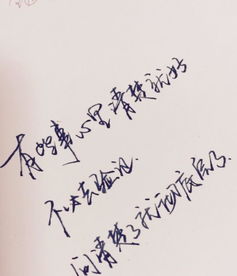 有些事心里清楚就好
不必去验证
问清楚了就到底了